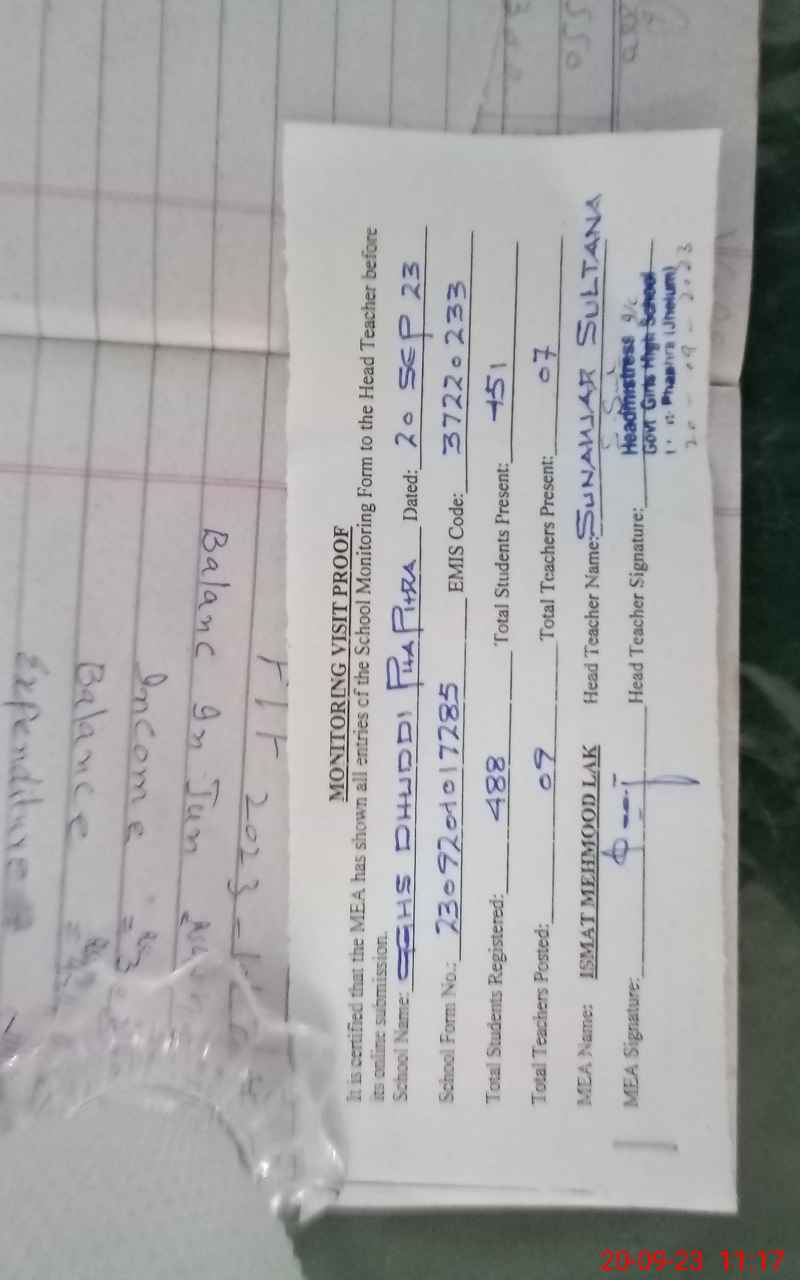 MONITORING VISIT PROOF
It is certified that the MEA has shown all entries of the School Monitoring Form to the Head Teacher before
its online submission.
School Name: GGHS DHUDDI PHAPHRA Dated: 20 SEP 23
School Form No.: 2309201017285 EMIS Code: 37220233
Total Students Registered: 488 Total Students Present: 451
Total Teachers Posted: 09 Total Teachers Present: 07
MEA Name: ISMAT MEHMOOD LAK Head Teacher Name: SUNAHJAR SULTANA
MEA Signature: Head Teacher Signature:
Headmistress
Govt Girls High School
Phaphra (Jhelum)
20-09-2023
2023
Balanc In Jun
Income =
Balance =
Expenditure
550
20-09-23 11:17